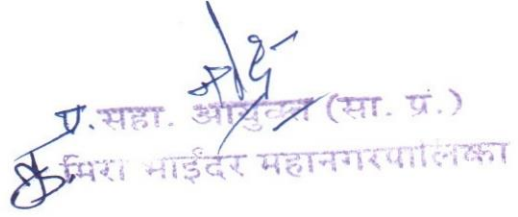 प्र.सहा. आयुक्त (सा. प्र.)
मिरा भाईंदर महानगरपालिका